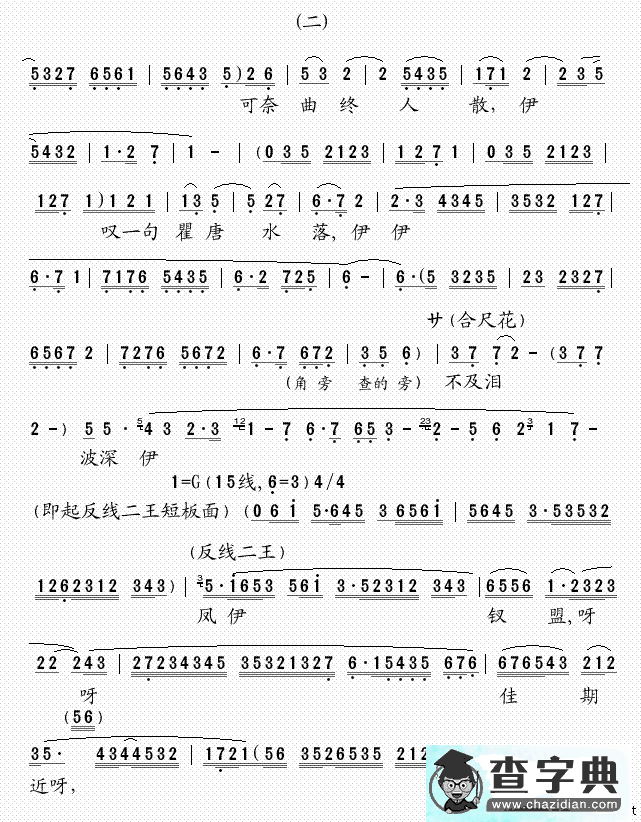 (二)
5327 6561 | 5643 5) 2 6 | 5 3 2 | 2 5435 | 171 2 | 2 3 5
可奈 曲 终 人 散, 伊
5432 | 1·2 7 | 1 - | (035 2123 | 127 1 | 035 2123 |
127 1) 1 2 1 | 13 5 | 5 27 | 6·7 2 | 2·3 4345 | 3532 127 |
叹一句 瞿 唐 水 落, 伊 伊
6·7 1 | 7176 5435 | 6·2 725 | 6 - | 6·(5 3235 | 23 2327 |
サ (合尺花)
6567 2 | 7276 5672 | 6·7 672 | 3 5 6) | 3 7 7 2 - (3 7 7
(角旁 查的旁) 不及泪
2 -) 5 5 · 5 4 3 2·3 12 1 - 7 6·7 65 3 - 23 2 - 5 6 2 3 1 7 -
波深 伊
1=G (15线, 6=3) 4/4
(即起反线二王短板面) (0 6 1 5·645 3 6561 | 5645 3·53532
(反线二王)
1262312 343) | 3 5·1653 561 3·52312 343 | 6556 1·2323
凤 伊 钗 盟, 呀
22 243 | 27234345 35321327 6·15435 676 | 676543 212
呀 佳 期
(56)
35· 4344532 | 1721(56 3526535 212
近呀,
查字典
www.chazidian.com
t